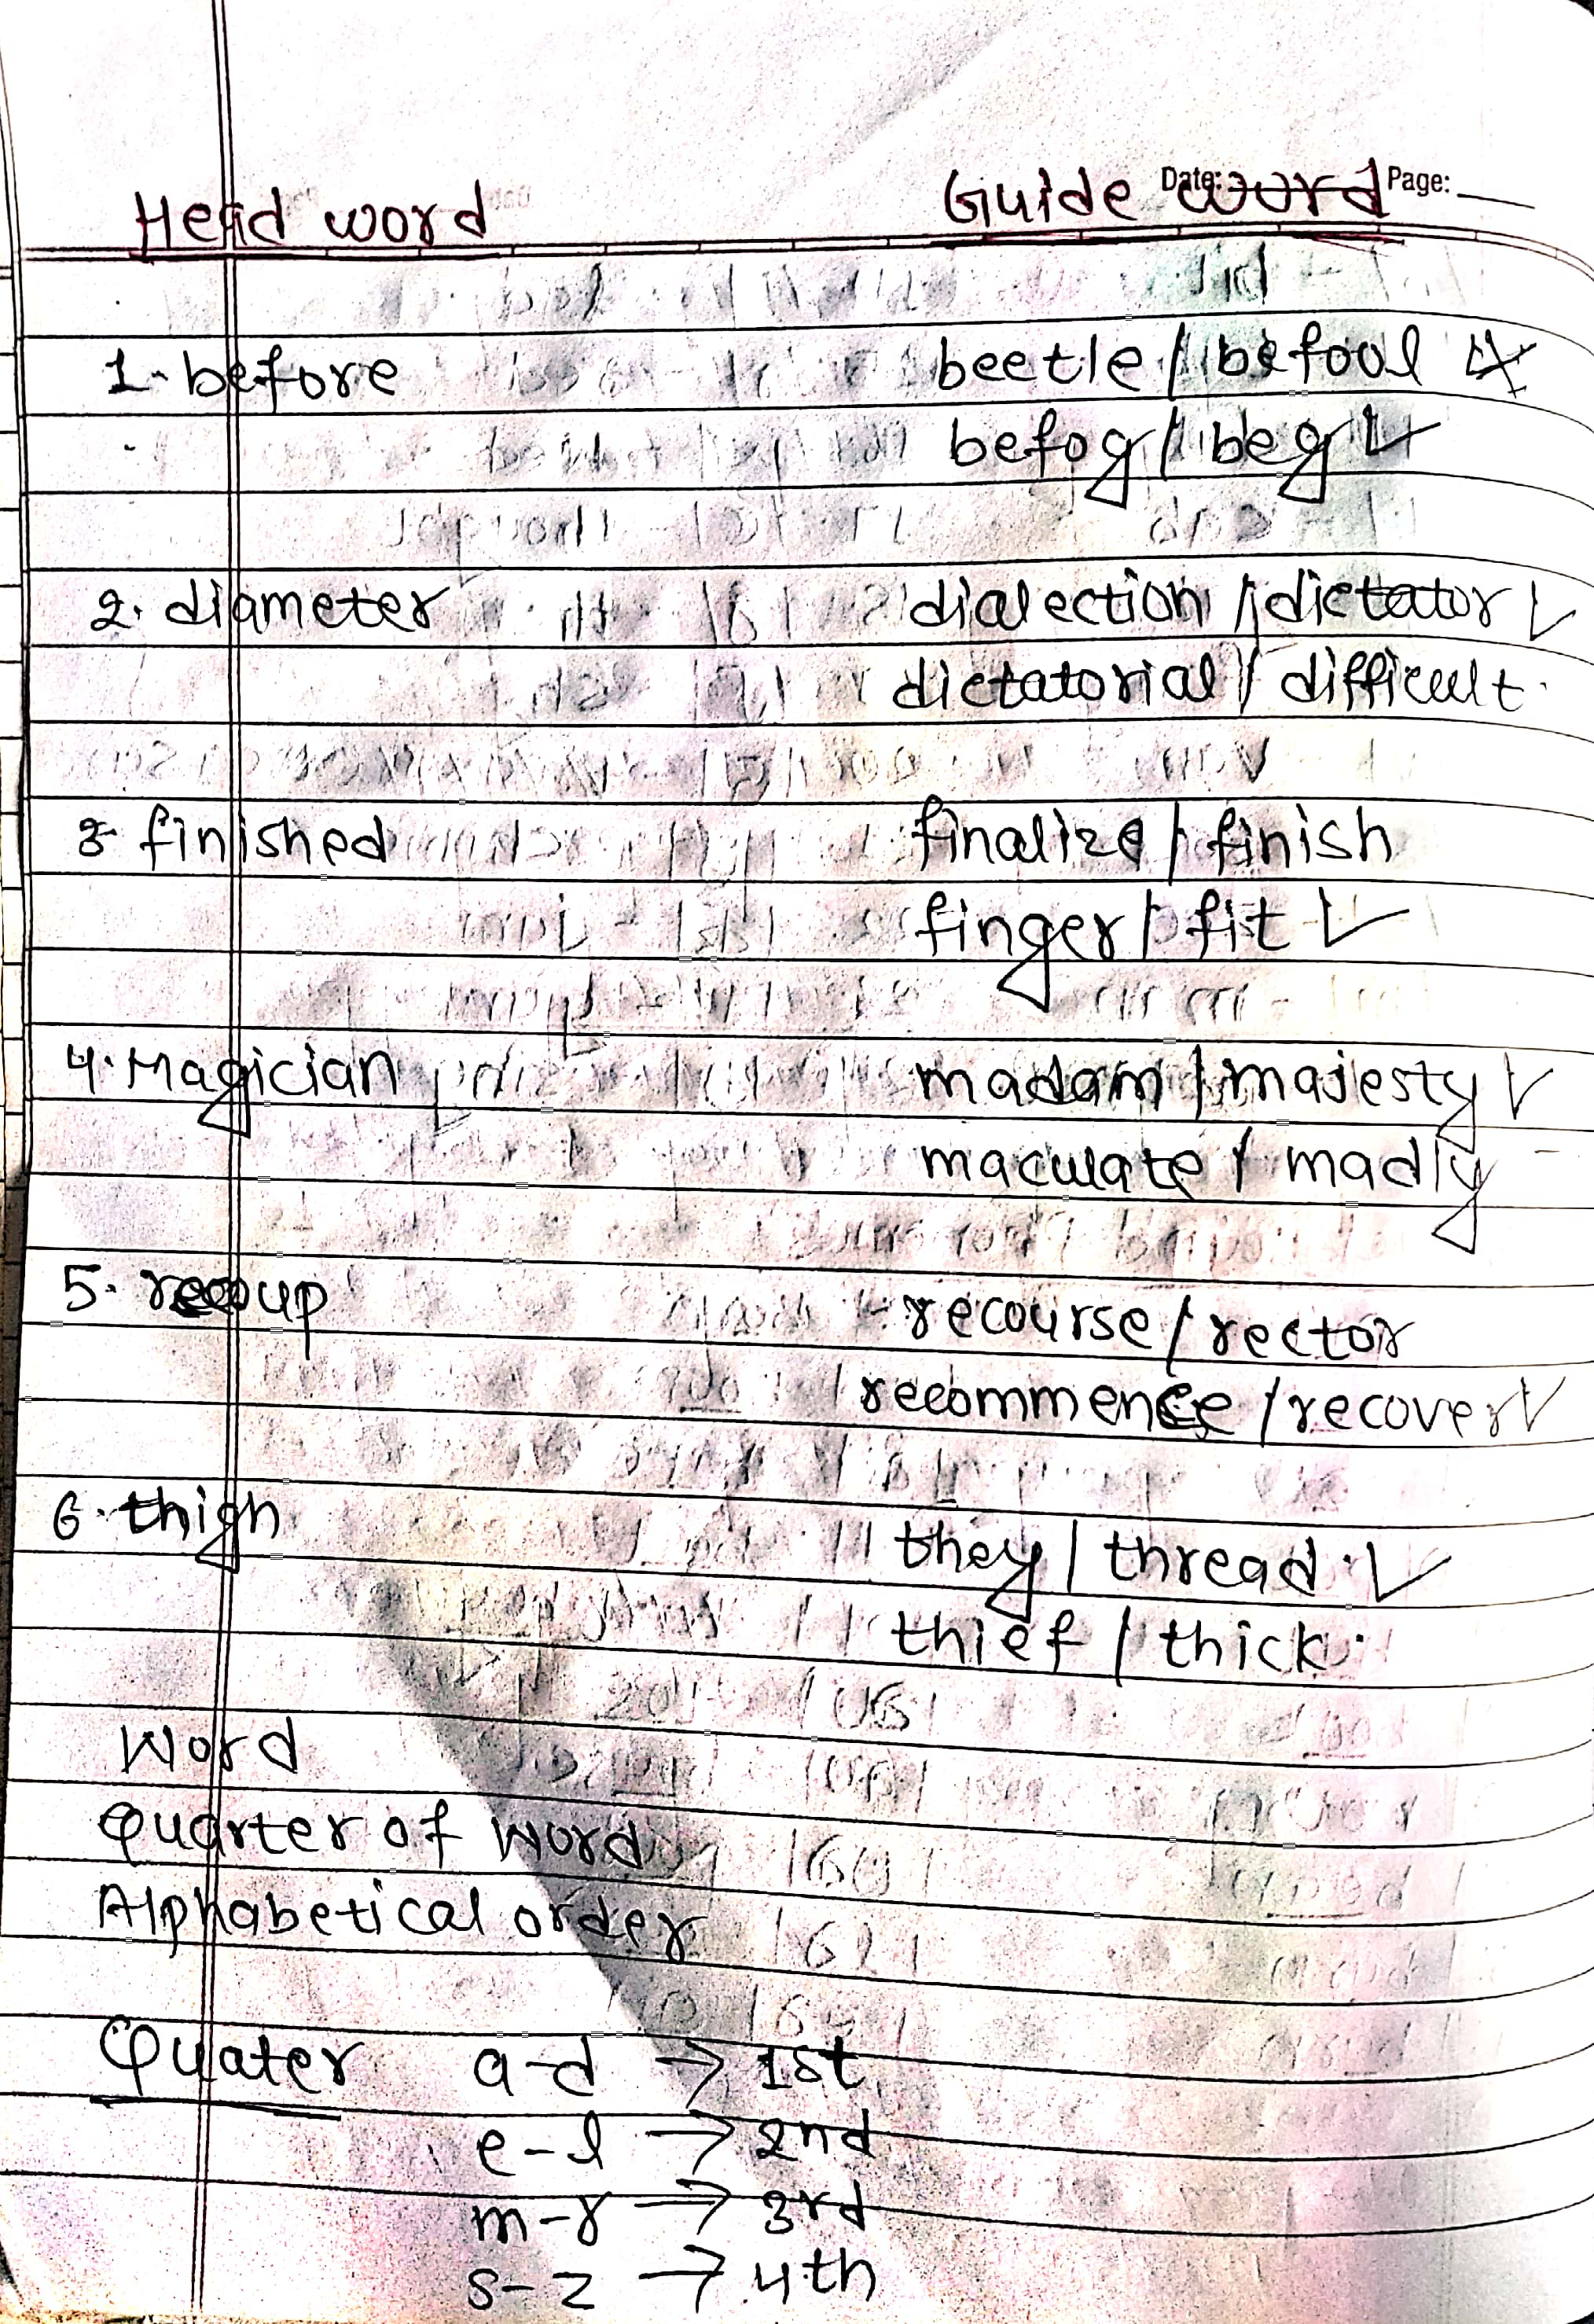 Head word Guide word Date: Page:
1. before beetle / befool
befog / beg ✓
2. diameter dialection / dictator ✓
dictatorial / difficult.
3. finished finalize / finish
finger / fit ✓
4. Magician madam / majesty ✓
maculate / madly
5. recoup recourse / rector
recommence / recover ✓
6. thigh they / thread. ✓
thief / thick.
Word
Quarter of Word
Alphabetical order
Quater a-d → 1st
e-l → 2nd
m-r → 3rd
s-z → 4th